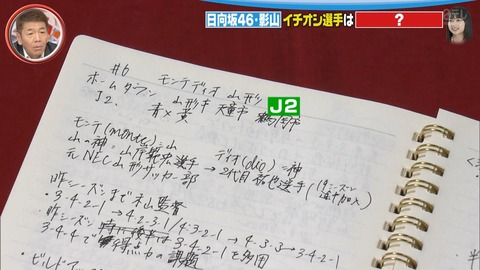 日向坂46・影山 イチオシ選手は ?
#6 モンテディオ山形
ホームタウン 山形市 天童市 鶴岡市
J2、 青×黄
J2
モンテ(monte)=山 ディオ(dio)=神
山の神=山岸範宏選手 → 2代目 拓也選手
元NEC山形サッカー部
昨シーズンまで木山監督
・3-4-2-1 → 4-2-3-1/4-3-2-1 → 4-3-3 → 3-4-2-1
昨シーズン 3-4-2-1を多用
3-4-4で得点力の課題
・ビルドアップ